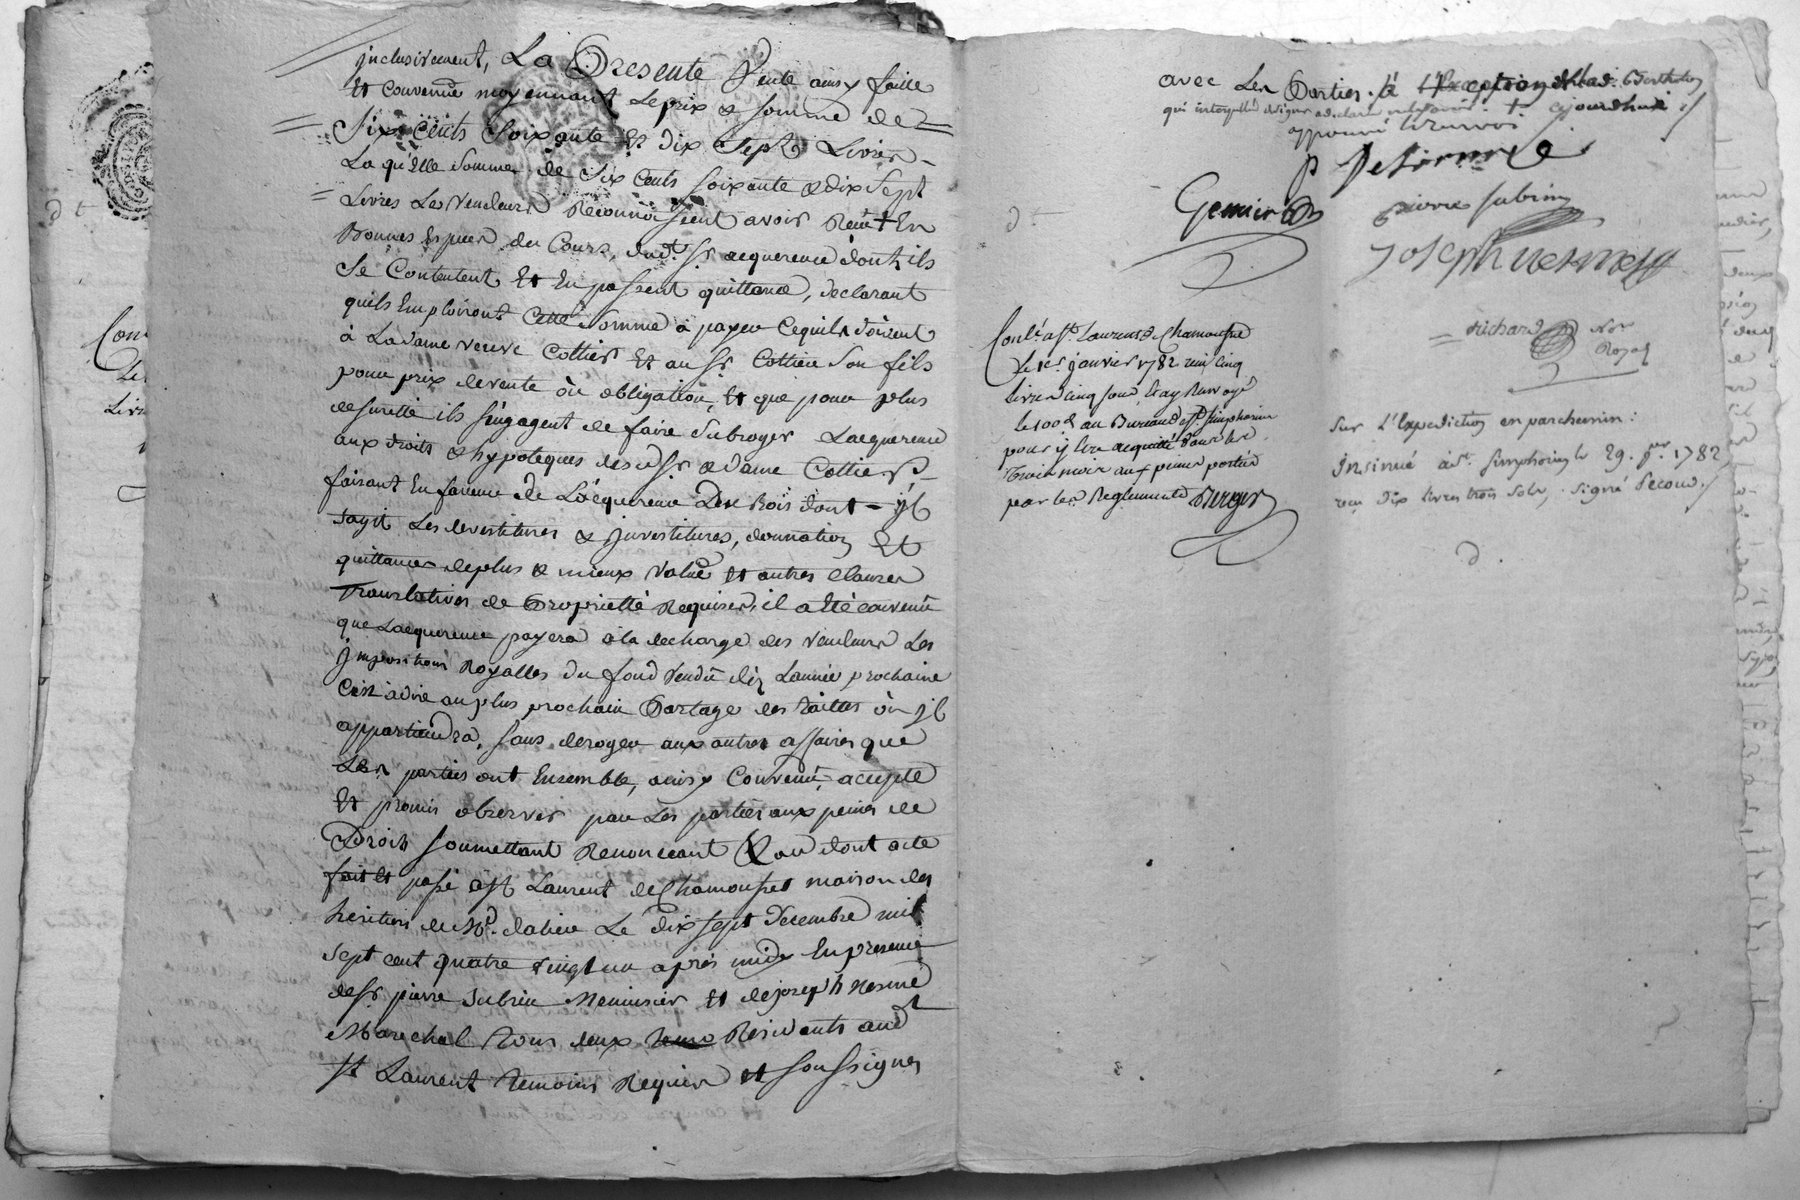 inclusivement, La Presente Vente ainsy faitte
Et Convenüe moyennant Le prix & somme de
Six Cents Soixante Et dix Sept Livres
La qu'elle Somme de Six Cents soixante & dix Sept
Livres Les Vendeurs Reconnoissent avoir Reçu + En
Bonnes Especes du Cours, dud. Sr. acquereur dont ils
Se Contentent Et En passent quittance, declarant
quils Employront Cette Somme à payer Cequils doivent
à La dame veuve Collier Et au Sr. Collier Son fils
pour prix de vente ou obligation, Et que pour plus
de suretté ils s'engagent de faire Subroger Lacquereur
aux droits & hypoteques desd. Sr. & dame Collier
faisant En faveur de Lacquereur Des Bois dont il
sagit Les devestitures & Investitures, donnation Et
quittances de plus & mieux Value Et autres Clauses
Translatives de Proprietté Requises, il a Eté convenü
que Lacquereur payera à la decharge des Vendeurs Les
Impositions Royalles du fond Vendü dès Lannée prochaine
C'est à dire au plus prochain Partage des Tailles où il
appartiendra, sans deroger aux autres affaires que
Les parties ont Ensemble, ainsy Convenü, accepté
Et promis observer par Les parties aux peines de
Droit soumettant Renonceant & au dont acte
fait Et passé à St. Laurent de Chamousset maison des
heritiers de Mr. dalier Le dix sept Decembre mil
sept cent quatre vingt un après midy En presence
de Sr. pierre Subrin Menuisier Et de joseph Nesme
Marechal Tous deux Residents aud.
St. Laurent Temoins Requis Et soussignes
avec Les Parties, à L'Exception de lad. Berthollon
qui interpellée de signer a declaré +
approuvé
Pierre Subrin
Joseph nesme
Richard Nore
Royal
Conlé à St. Laurent de Chamousset
Le 1er. janvier 1782 reçu cinq
livres cinq sous, Et ay Renvoyé
le 100e. au Bureau de St. simphorien
pour y Etre acquitté dans les
Trois mois aux peines portées
par les Reglements Berger
Sur L'Expedition en parchemin:
Insinué à St. Simphorien le 29. jer. 1782
reçu dix livres trois Sols, signé Secour.